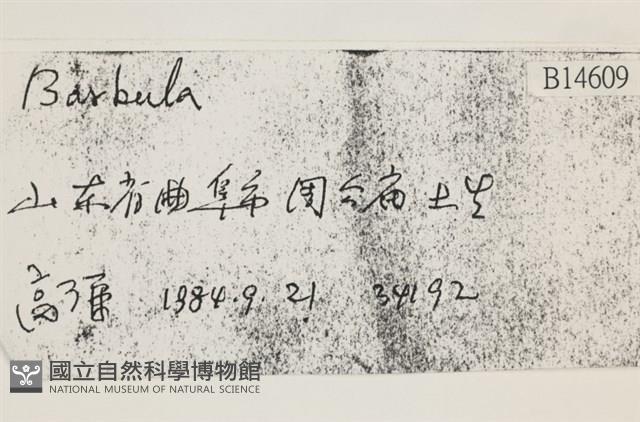 Barbula
B14609
山东省曲阜市周公庙土生
高 1984.9.21 34192
國立自然科學博物館
NATIONAL MUSEUM OF NATURAL SCIENCE